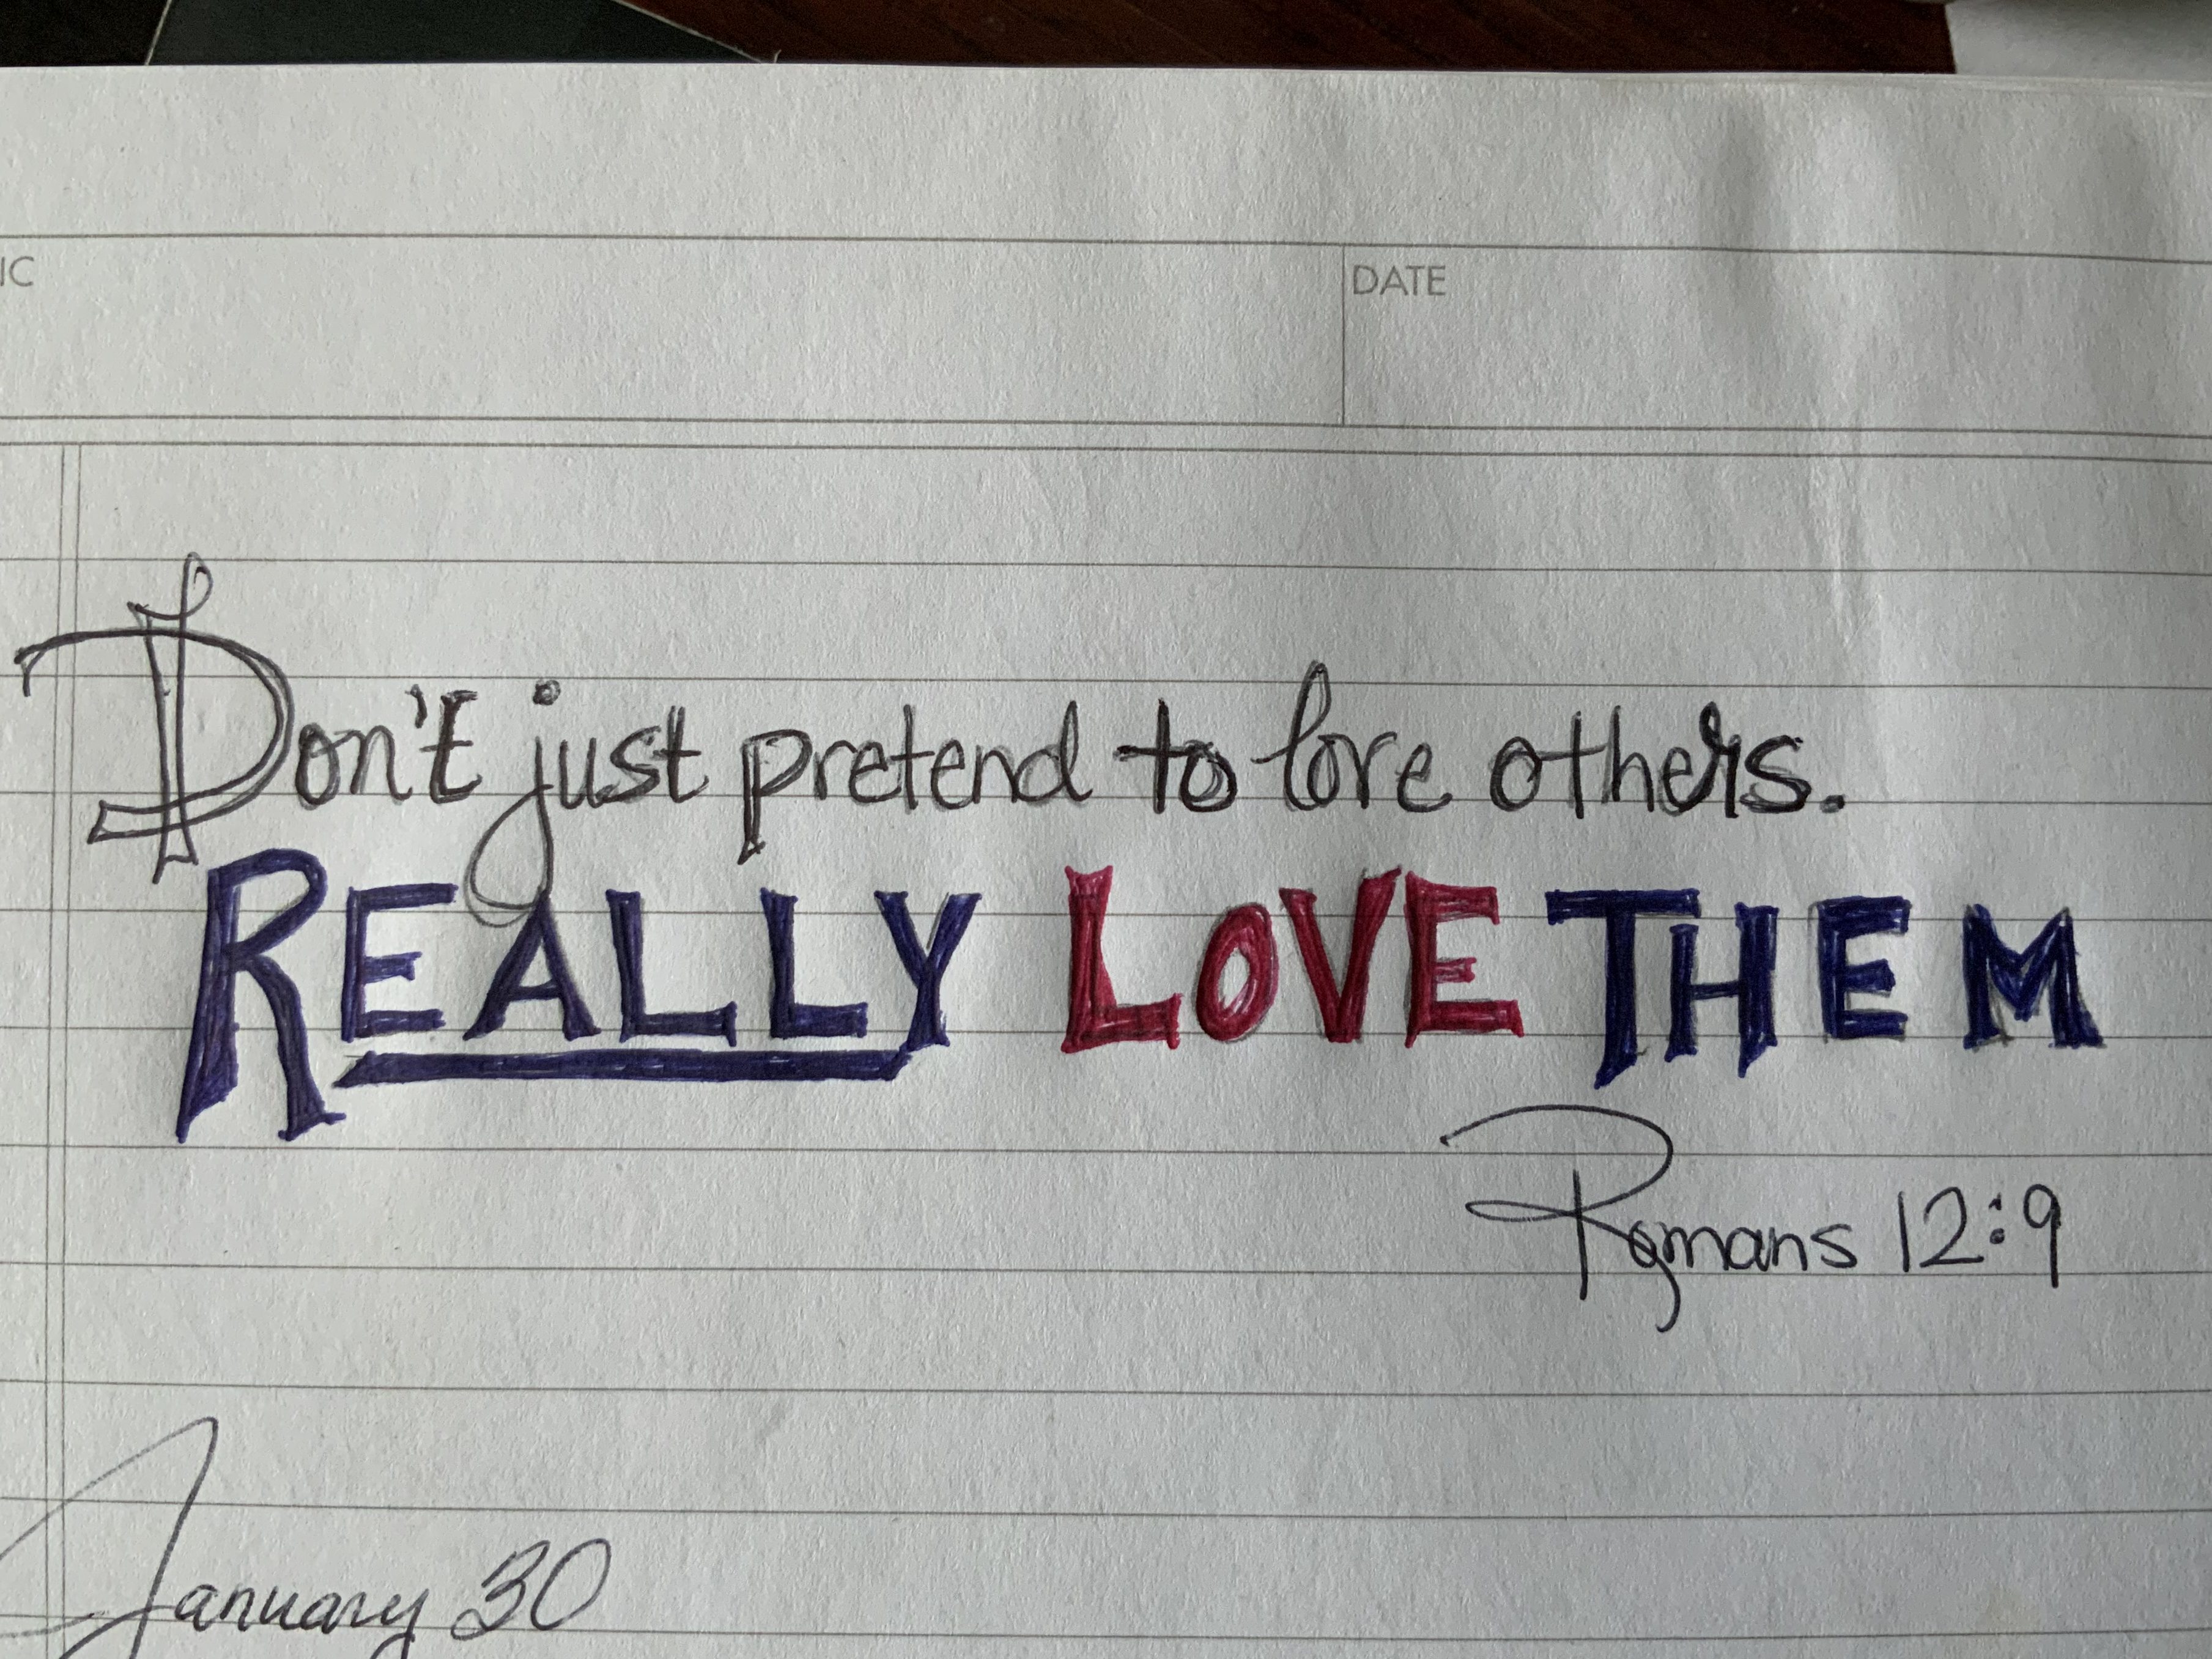 IC
DATE
Don't just pretend to love others.
REALLY LOVE THEM
Romans 12:9
January 30